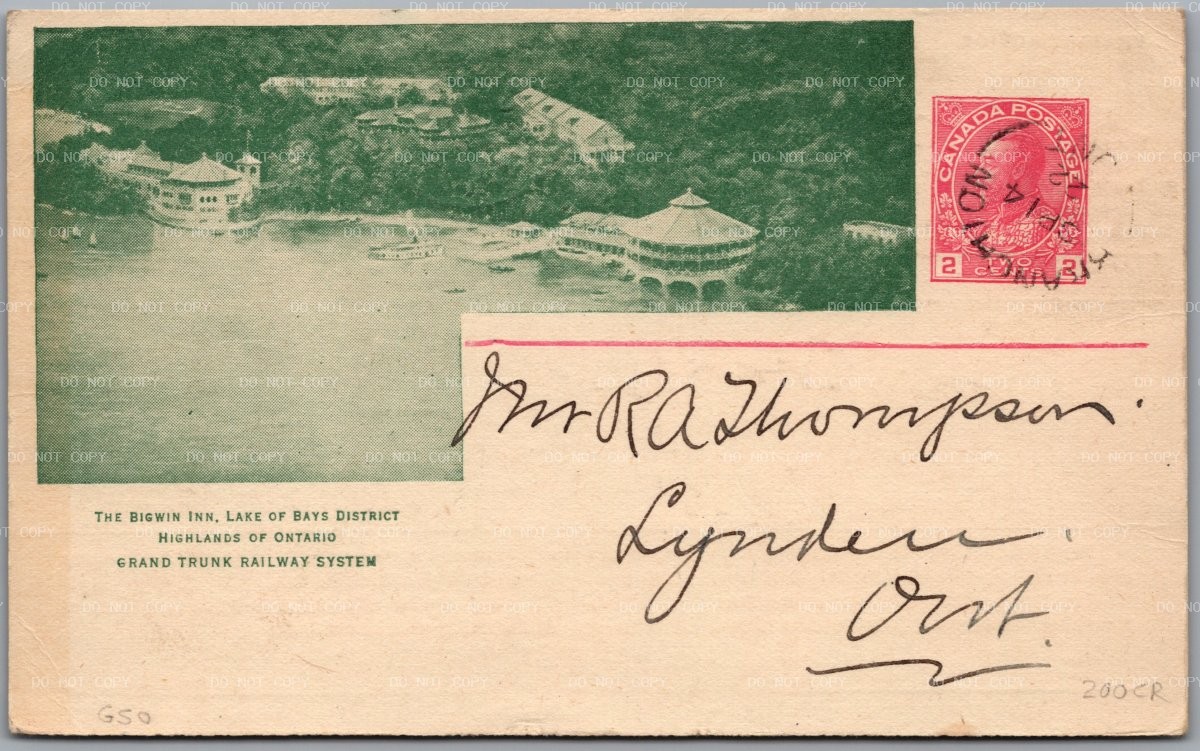 CANADA POSTAGE
2 TWO CENTS 2
AP 14
Mr R A Thompson.
Lynden.
Ont.
THE BIGWIN INN, LAKE OF BAYS DISTRICT
HIGHLANDS OF ONTARIO
GRAND TRUNK RAILWAY SYSTEM
G50
200CR
DO NOT COPY